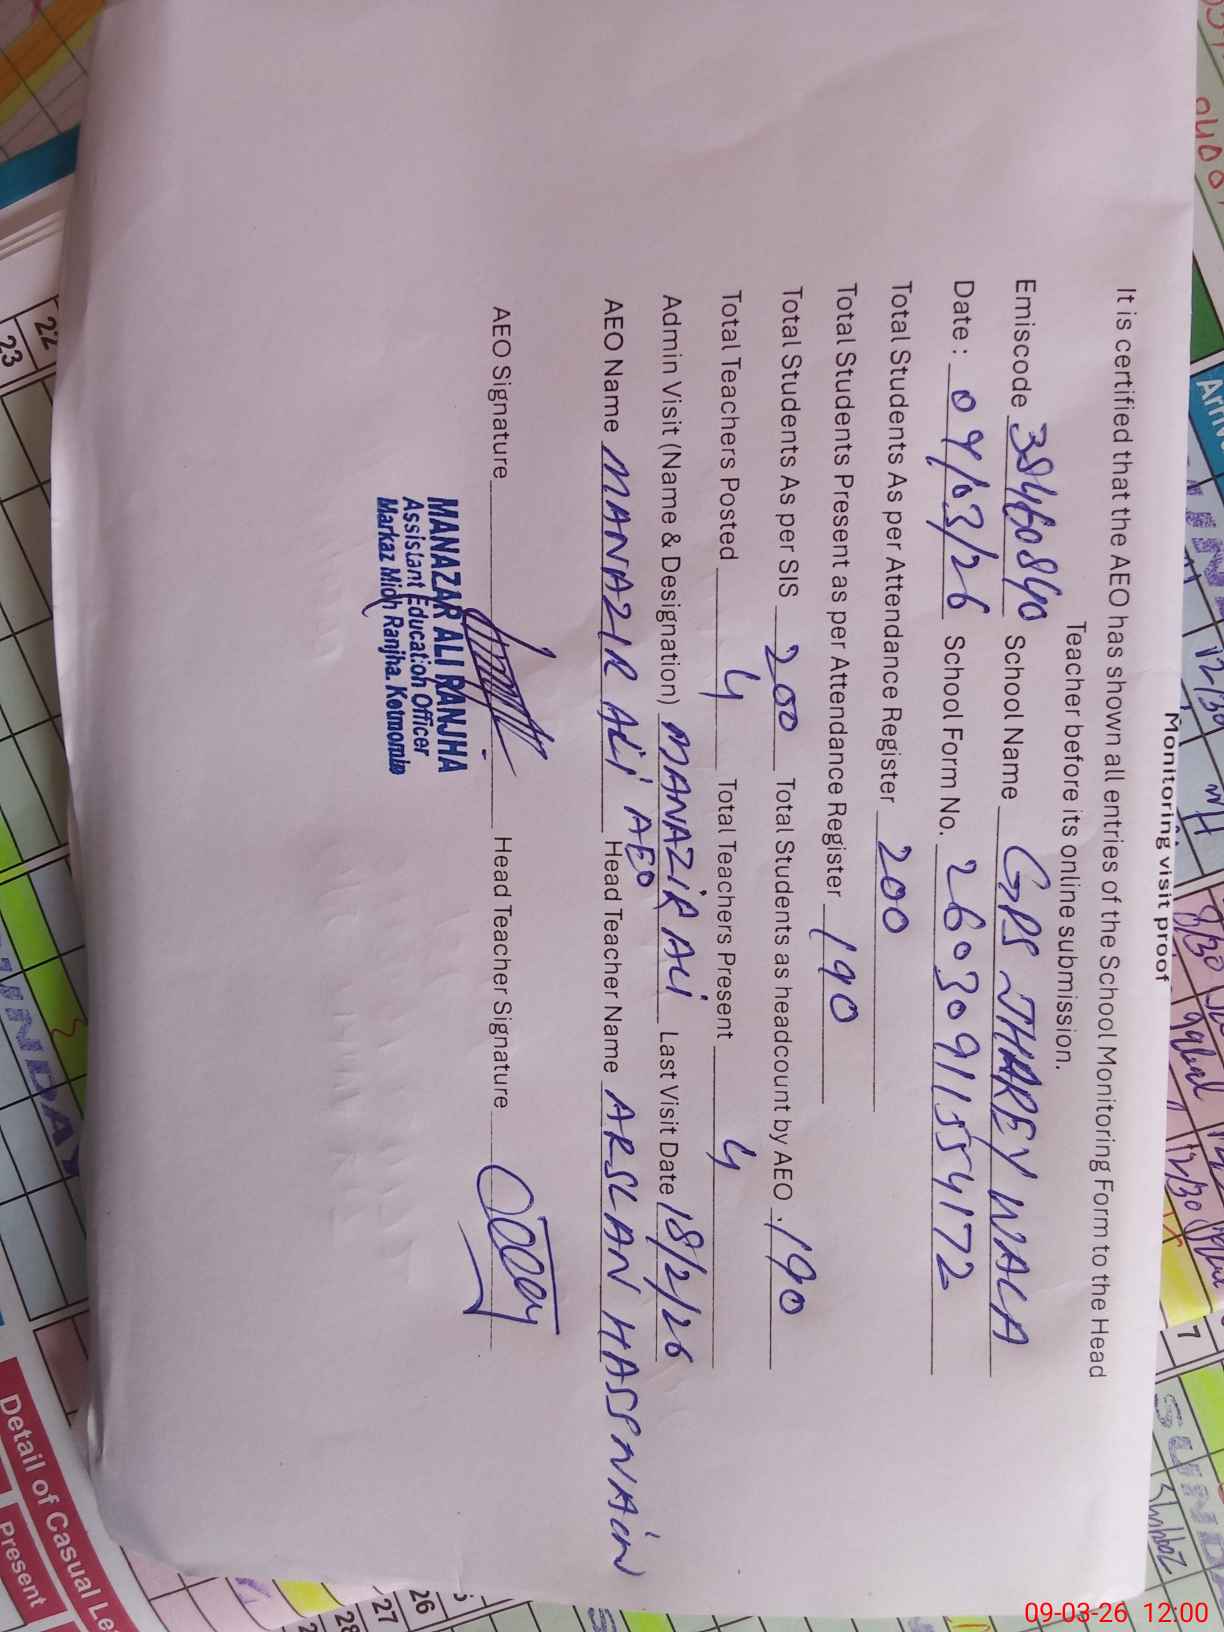 Monitoring visit proof
It is certified that the AEO has shown all entries of the School Monitoring Form to the Head
Teacher before its online submission.
Emiscode 38460840 School Name GPS JHAREY WALA
Date : 09/03/26 School Form No. 26030911554172
Total Students As per Attendance Register 200
Total Students Present as per Attendance Register 190
Total Students As per SIS 200 Total Students as headcount by AEO 190
Total Teachers Posted 4 Total Teachers Present 4
Admin Visit (Name & Designation) MANAZIR ALI Last Visit Date 18/2/26
AEO
AEO Name MANAZIR ALI Head Teacher Name ARSLAN HASSNAIN
AEO Signature Head Teacher Signature
MANAZAR ALI RANJHA
Assistant Education Officer
Markaz Ranjha. Kotmomin
22
23
Detail of Casual Le
Present
26
27
28
7
SUND
UNDAY
Shahbaz
12/30
8/30
12/30
09-03-26 12:00